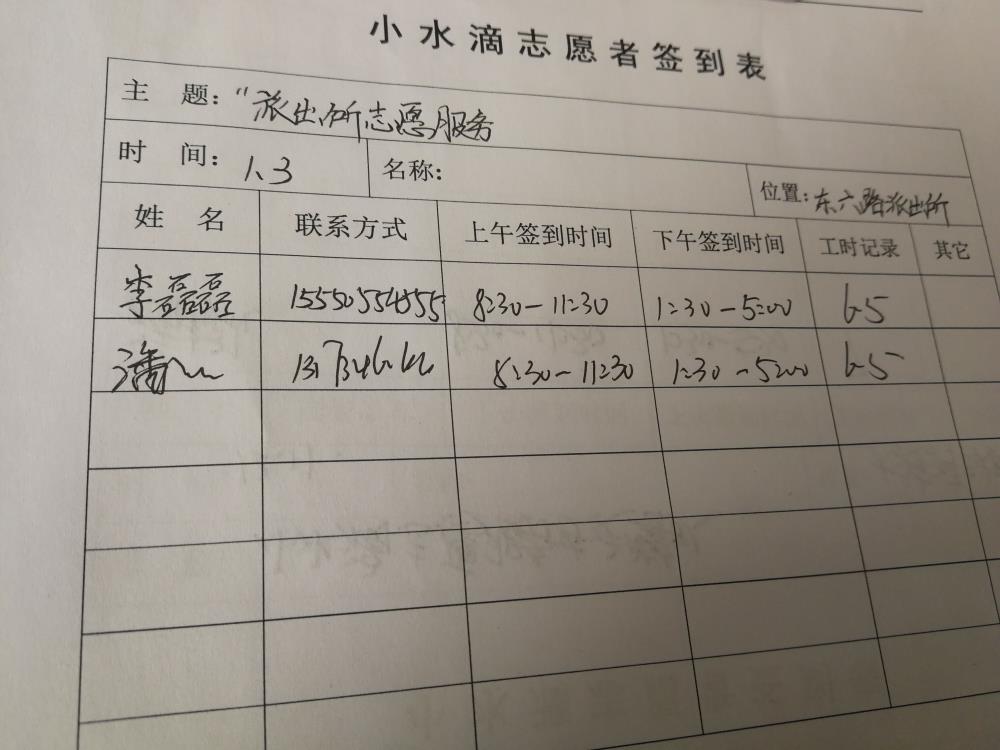 小水滴志愿者签到表
主 题: "派出所志愿服务
时 间: 1.3 名称: 位置: 东六路派出所
姓 名 联系方式 上午签到时间 下午签到时间 工时记录 其它
李磊磊 15550554555 8:30-11:30 1:30-5:00 6.5
潘 8:30-11:30 1:30-5:00 6.5